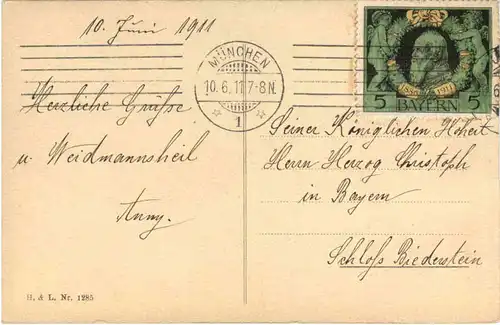 10. Juni 1911
MÜNCHEN
10.6.11.7-8N.
1
1886 1911
5 BAYERN 5
Herzliche Grüsse
u. Weidmannsheil
Anny.
Seiner Königlichen Hoheit
Herrn Herzog Christoph
in Bayern
Schloß Biederstein
H. & L. Nr. 1285